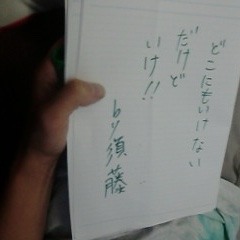 どこにもいけない
だけど
いけ!!
by須藤